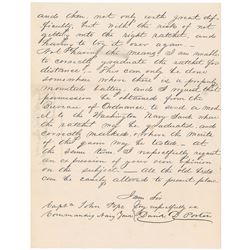 and then, not only with great dif-
ficulty, but with the risk of not
getting into the right ratchet, and
having to try it over again.
Not having the means, I am unable
to correctly graduate the ratchet for
distance. This can only be done
somewhere where there is a properly
mounted battery, and I request that
permission be obtained from the
Bureau of Ordnance, to send a mod-
el to the Washington Navy Yard where
the ratchet may be graduated, and
correctly marked, & where the merits
of this pawn may be tested. At
the same time I respectfully request
an expression of your own opinion
on the subject. All the old beds
can be easily altered to present plan.
I am Sir
Capt. John Pope Very respectfully &c
Commandg Navy Yard David D. Porter